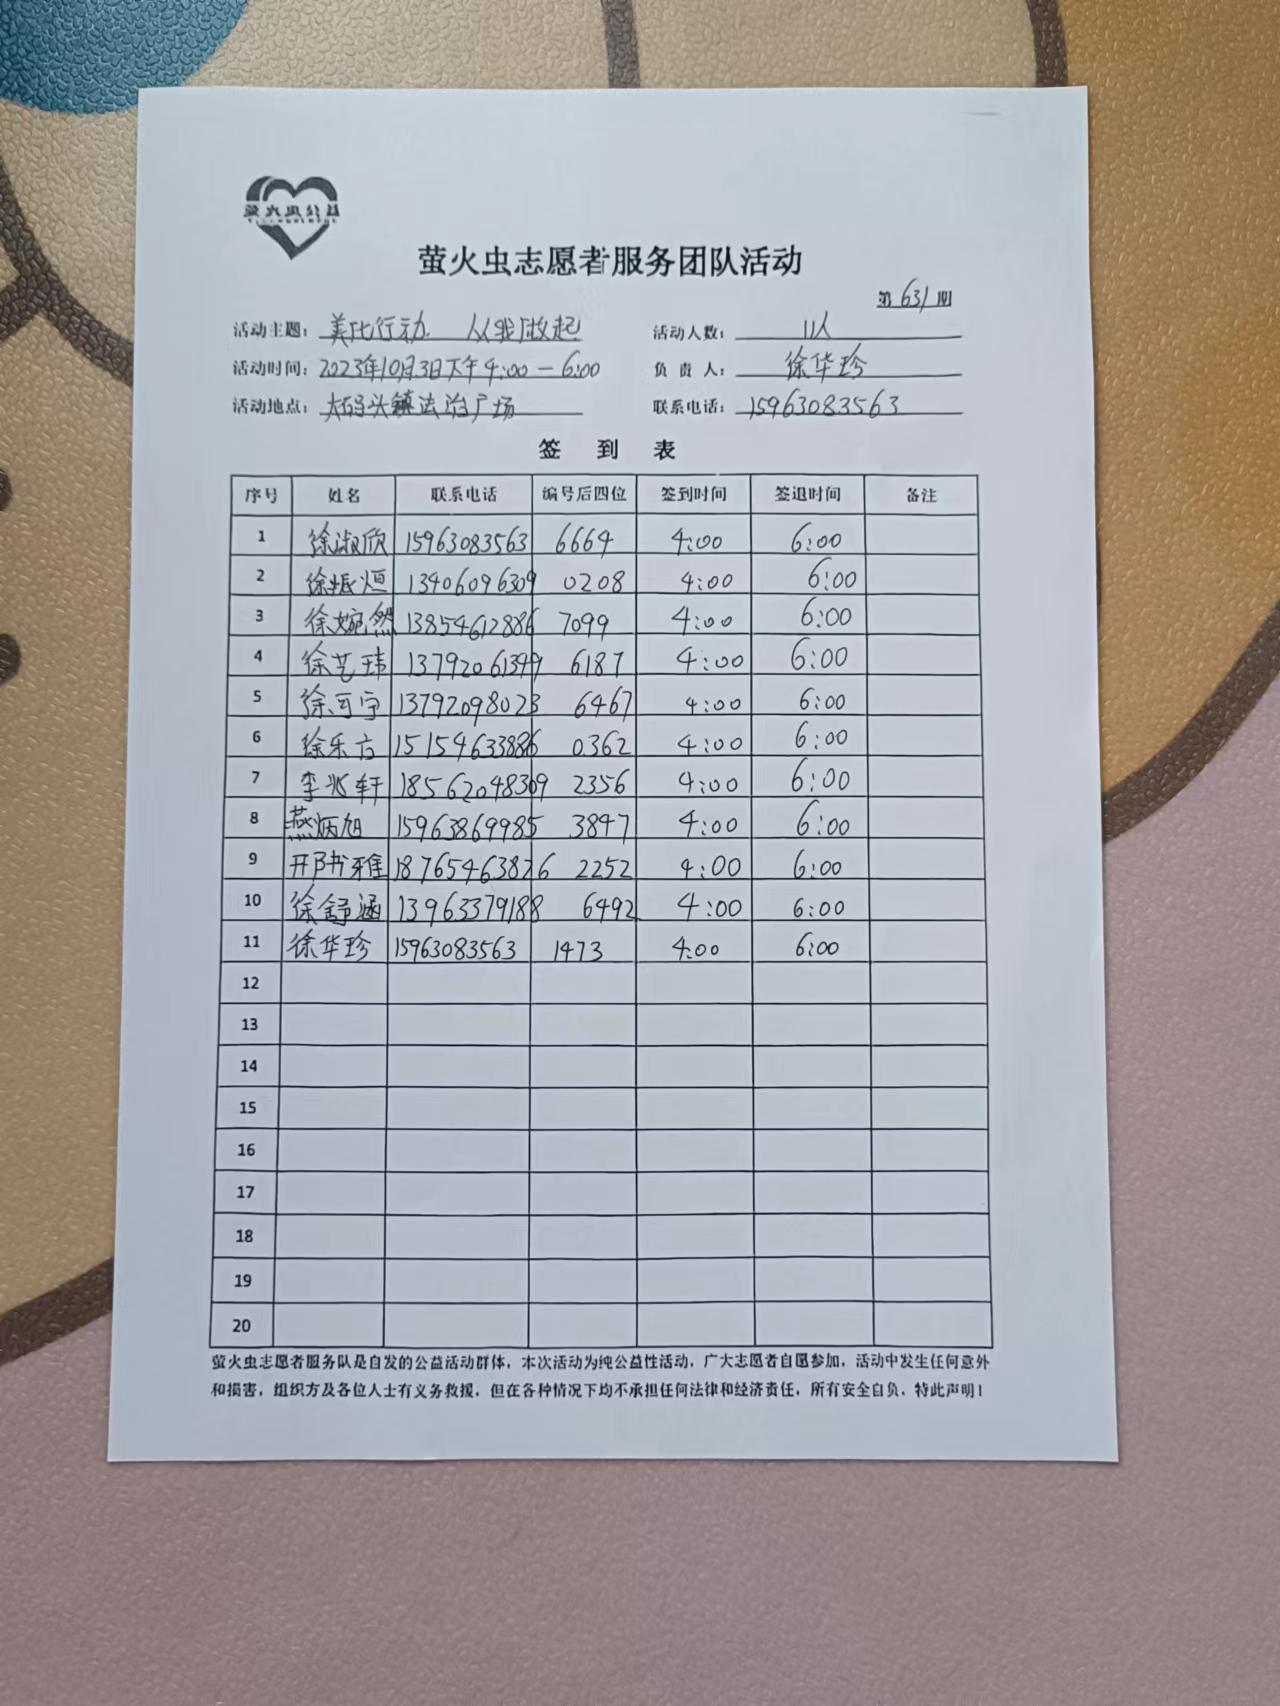 萤火虫公益
萤火虫志愿者服务团队活动
第 631 期
活动主题：美化行动 从我做起 活动人数：11人
活动时间：2023年10月3日下午4:00-6:00 负责人：徐华珍
活动地点：大码头镇法治广场 联系电话：15963083563
签到表
序号 姓名 联系电话 编号后四位 签到时间 签退时间 备注
1 徐淑欣 15963083563 6664 4:00 6:00
2 徐振烜 13406096309 0208 4:00 6:00
3 徐婉然 13854612886 7099 4:00 6:00
4 徐艺玮 13792061399 6187 4:00 6:00
5 徐可宁 13792098023 6467 4:00 6:00
6 徐乐方 15154633886 0362 4:00 6:00
7 李兆轩 18562048309 2356 4:00 6:00
8 燕炳旭 15963869985 3847 4:00 6:00
9 书雅 18765463826 2252 4:00 6:00
10 徐舒涵 13963379188 6492 4:00 6:00
11 徐华珍 15963083563 1473 4:00 6:00
12
13
14
15
16
17
18
19
20
萤火虫志愿者服务队是自发的公益活动群体，本次活动为纯公益性活动，广大志愿者自愿参加，活动中发生任何意外
和损害，组织方及各位人士有义务救援，但在各种情况下均不承担任何法律和经济责任，所有安全自负，特此声明！